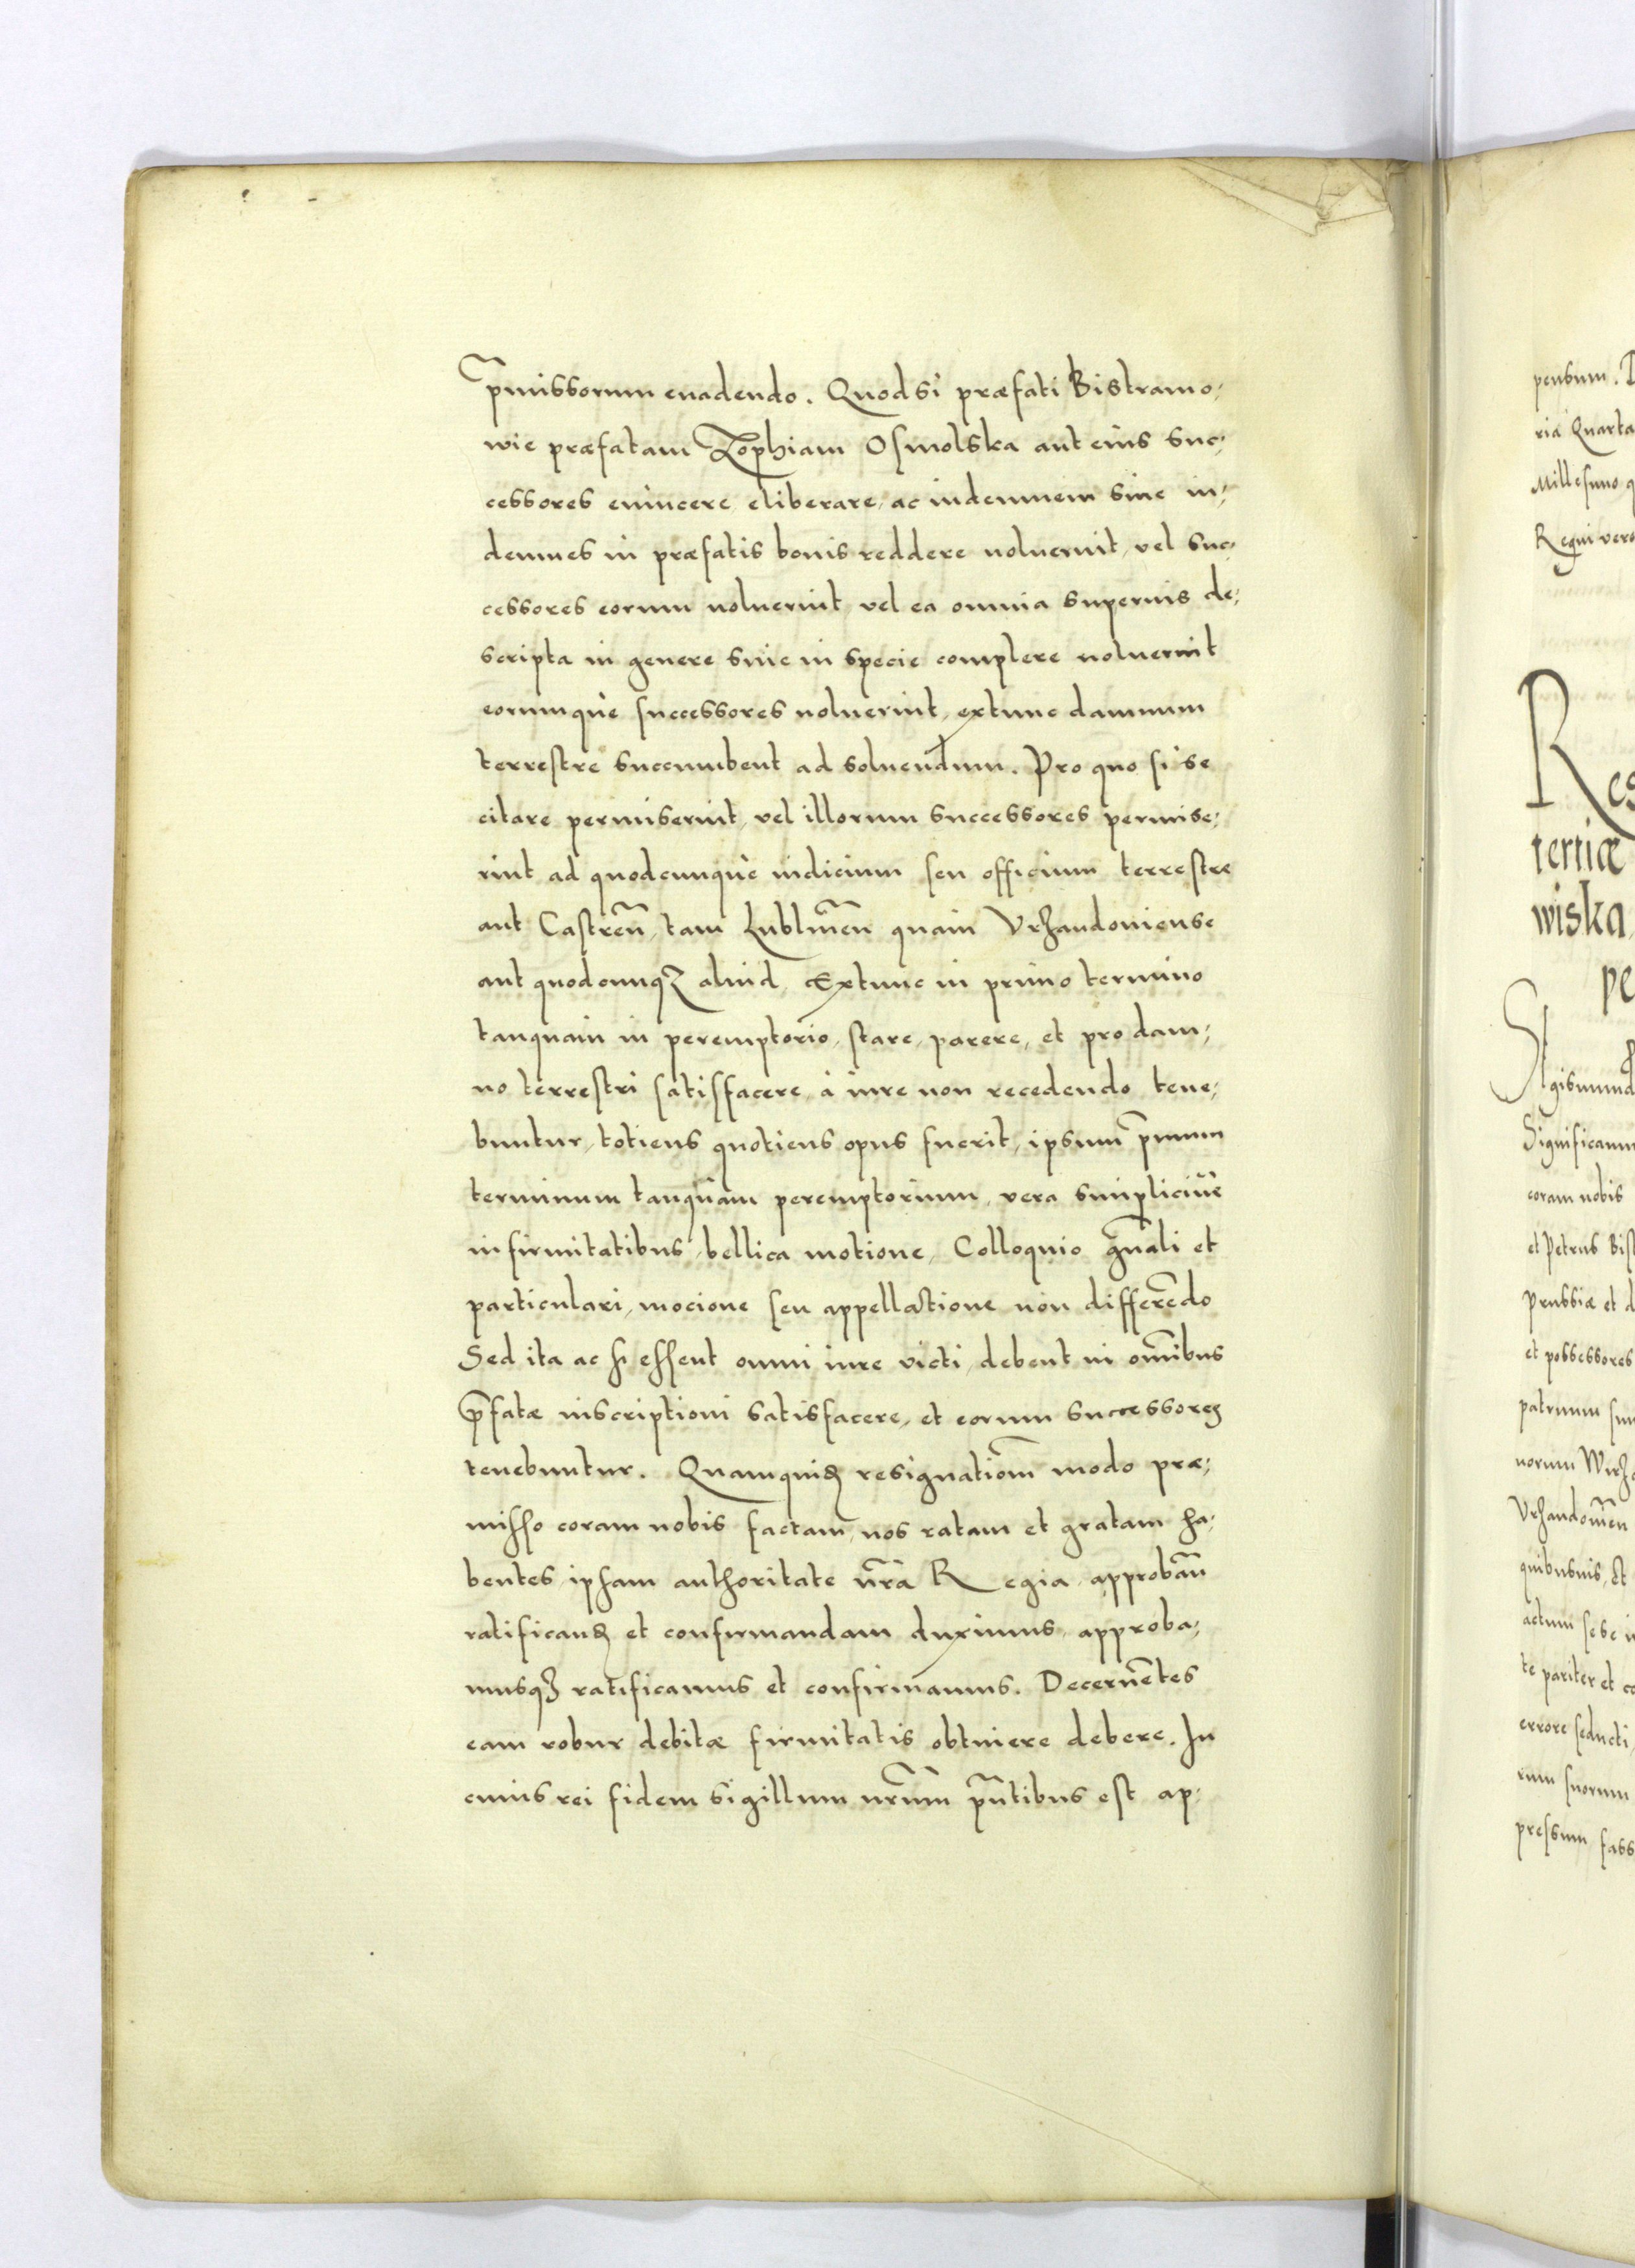 p̄missorum euadendo. Quod si præfati Bistramo,
wie præfatam Zophiam Osmolska aut eius suc,
cessores euincere eliberare, ac indemnem siue in,
demnes in præfatis bonis reddere noluerint, vel suc,
cessores eorum noluerint, vel ea omnia superius de,
scripta in genere siue in specie complere noluerint
eorumque successores noluerint, extunc damnum
terrestre succumbent ad soluendum. Pro quo si se
citare permiserint, vel illorum successores permise,
rint ad quodcunque iudicium seu officium terrestre
aut Castren̄, tam Lublinen̄ quam Vrzandouiense
aut quodcunq₃ aliud, Extunc in primo termino
tanquam in peremptorio, stare, parere, et pro dam,
no terrestri satisfacere, à iure non recedendo tene,
buntur, totiens quotiens opus fuerit, ipsum p̄mum
terminum tanquam peremptorium, vera simpliciue
infirmitatibus, bellica motione, Colloquio gn̄ali et
particulari, mocione seu appellatione non differēdo
Sed ita ac si essent omni iure victi, debent in om̄ibus
p̄fatæ inscriptioni satisfacere, et eorum successores
tenebuntur. Quamquid resignatiōm modo præ,
misso coram nobis factam, nos ratam et gratam ha,
bentes, ipsam authoritate nr̄a Regia, approban̄
ratificand et confirmandam duximus, approba,
musq₃ ratificamus et confirmamus. Decernētes
eam robur debitæ firmitatis obtinere debere. In
cuius rei fidem sigillum nr̄um pn̄tibus est ap,
pensum.
ria Quarta
Millesimo q
Regni vero
Res
tertiæ
wiska
pe
Sigismund
Significam
coram nobis
et Petrus Bis
Prussiæ et d
et possessores
patruum su
norum Wirz
Vrzandouien̄
quibusuis, Et
actum sese i
te pariter et co
errore seducti,
rum suorum
pressum fass